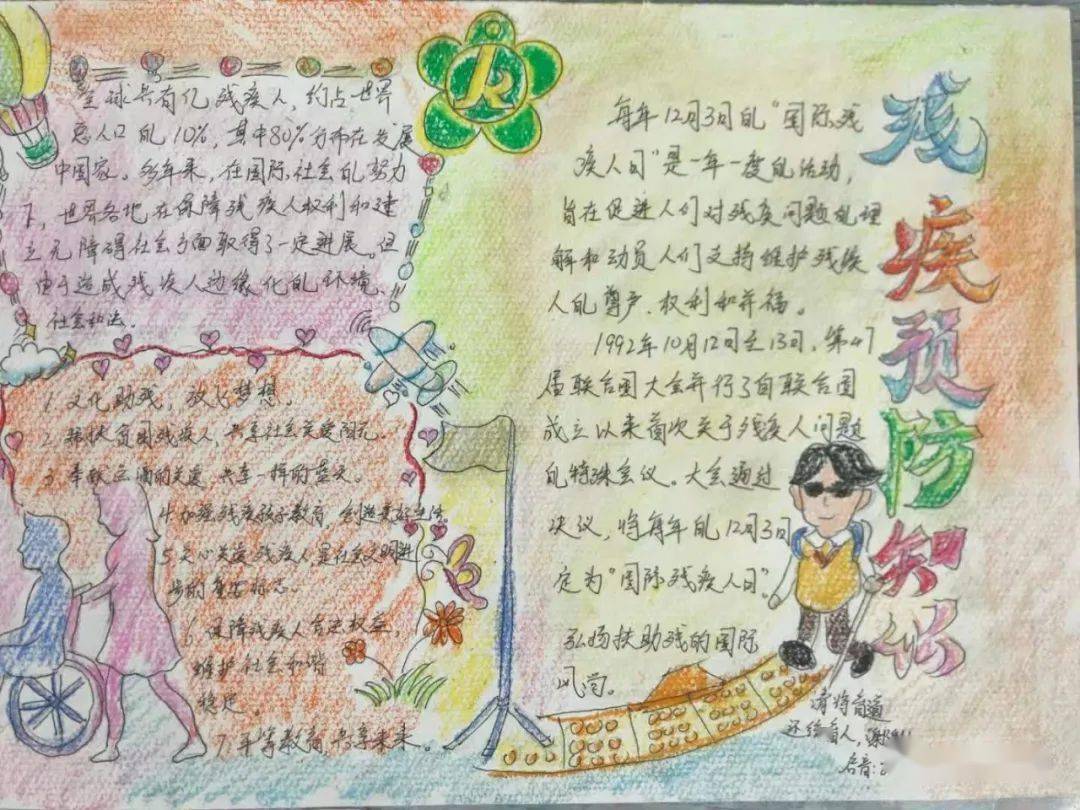 残疾预防知识
全球共有亿残疾人，约占世界
总人口的10%，其中80%分布在发展
中国家。多年来，在国际社会的努力
下，世界各地在保障残疾人权利和建
立无障碍社会方面取得了一定进展。但
由于造成残疾人边缘化的环境、
社会和法。
1. 文化助残，放飞梦想。
2. 扶贫困残疾人，共享社会关爱阳光。
3. 奉献 的关爱，共享一样的蓝天。
4. 加强残疾孩子教育，创造美好生活。
5. 关心关爱残疾人是社会文明进
步的重要标志。
6. 保障残疾人合法权益，
维护社会和谐
稳定。
7. 平等教育 共享未来。
每年12月3日的“国际残
疾人日”是一年一度的活动，
旨在促进人们对残疾问题的理
解和动员人们支持维护残疾
人的尊严、权利和幸福。
1992年10月12日至13日，第47
届联合国大会举行了自联合国
成立以来首次关于残疾人问题
的特殊会议。大会通过
决议，将每年的12月3日
定为“国际残疾人日”。
弘扬扶助残的国际
风尚。
请将盲道
还给盲人，谢